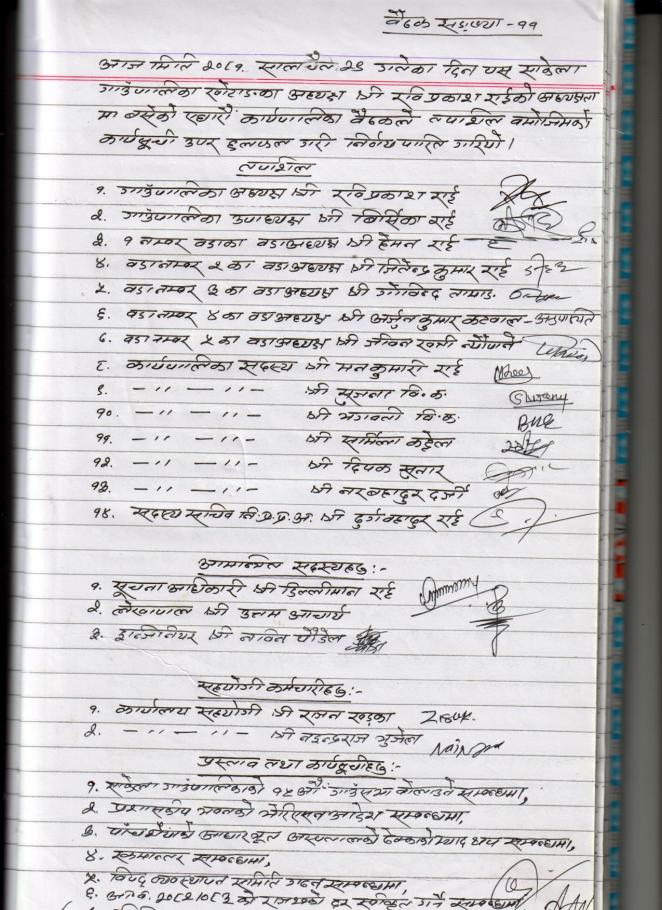 बैठक सङ्ख्या - ११
आज मिति २०८१ साल चैत २९ गतेका दिन यस साकेला
गाउँपालिका खोटाङका अध्यक्ष श्री रविप्रकाश राईको अध्यक्षता
मा बसेको एघारौं कार्यपालिका बैठकले तपाशिल बमोजिमको
कार्यसूची उपर छलफल गरी निर्णय पारित गरियो।
तपाशिल
१. गाउँपालिका अध्यक्ष श्री रविप्रकाश राई
२. गाउँपालिका उपाध्यक्ष श्री बिर्सिका राई
३. १ नम्बर वडाका वडाअध्यक्ष श्री हेमन राई
४. वडा नम्बर २ का वडाअध्यक्ष श्री जितेन्द्र कुमार राई
५. वडा नम्बर ३ का वडाअध्यक्ष श्री गोविन्द तामाङ
६. वडा नम्बर ४ का वडाअध्यक्ष श्री अर्जुन कुमार कटवाल - अनुपस्थिति
७. वडा नम्बर ५ का वडाअध्यक्ष श्री जीवन खत्री न्यौपाने
८. कार्यपालिका सदस्य श्री मनकुमारी राई
९. -〃- -〃- श्री सृजना वि.क.
१०. -〃- -〃- श्री भगवती वि.क.
११. -〃- -〃- श्री सर्मिला कट्टेल
१२. -〃- -〃- श्री दिपक सुनार
१३. -〃- -〃- श्री नरबहादुर दर्जी
१४. सदस्य सचिव नि.प्र.प्र.अ. श्री दुर्गबहादुर राई
आमान्त्रित सदस्यहरु:-
१. सूचना अधिकारी श्री डिल्लीमान राई
२. लेखापाल श्री उत्तम आचार्य
३. इन्जिनियर श्री नविन पौडेल
सहयोगी कर्मचारीहरु:-
१. कार्यालय सहयोगी श्री राजन खड्का
२. -〃- श्री नइन्द्रराज भुजेल
प्रस्ताव तथा कार्यसूचीहरु:-
१. साकेला गाउँपालिकाको १५ औं गाउँसभा बोलाउने सम्बन्धमा,
२. प्रशासकीय भवनको भेरिएसन आदेश सम्बन्धमा
३. पाँच शैयाको आधारभूत अस्पतालको ठेक्काको म्याद थप सम्बन्धमा,
४. रकमान्तर सम्बन्धमा,
५. विपद् व्यवस्थापन समिति गठन सम्बन्धमा,
६. आ.व. २०८२/०८३ को राजश्वको दर स्वीकृत गर्ने सम्बन्धमा